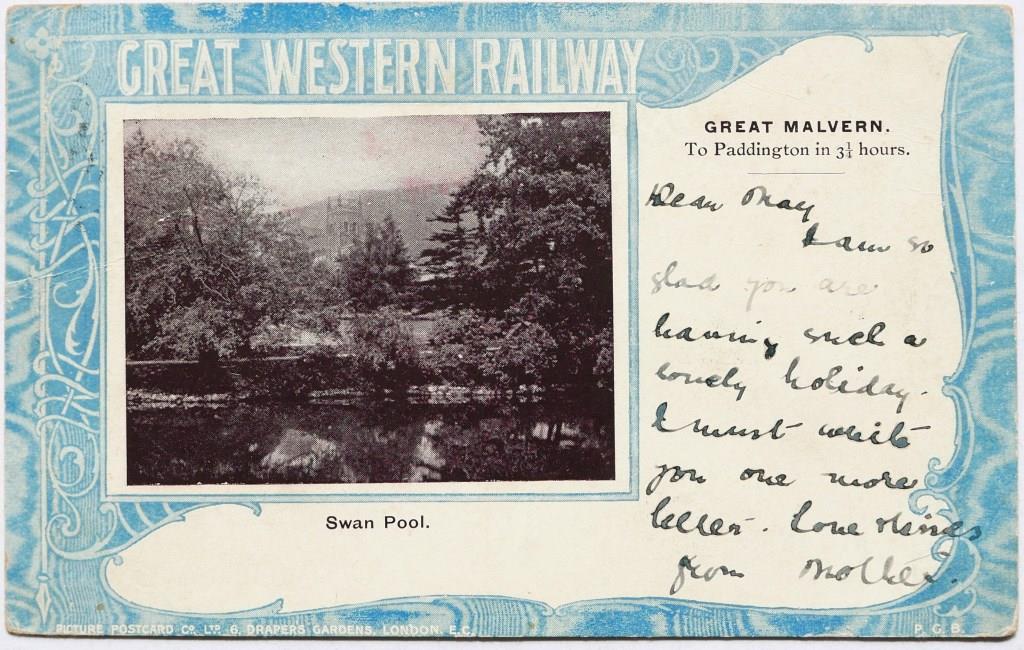 GREAT WESTERN RAILWAY
GREAT MALVERN.
To Paddington in 3¼ hours.
Dear May
I am so
glad you are
having such a
lovely holiday.
I must write
you one more
letter. Love & kisses
from Mother.
Swan Pool.
PICTURE POSTCARD CO. LTD. 6, DRAPERS GARDENS, LONDON, E.C.
P. G. B.